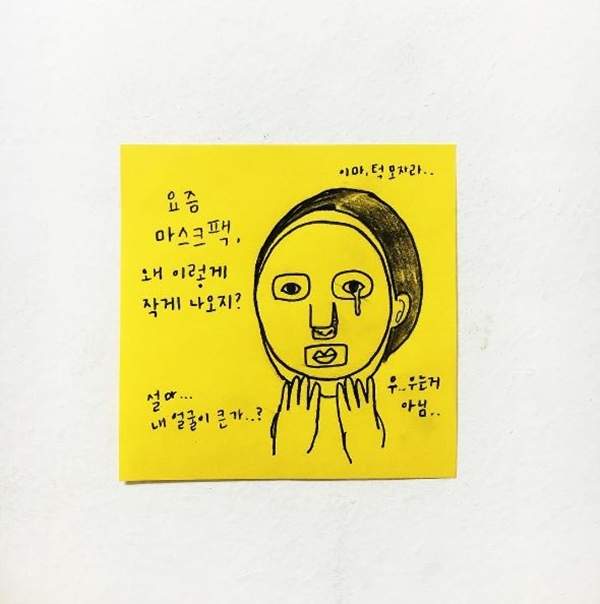 이마, 턱 모자라..
요즘
마스크팩,
왜 이렇게
작게 나오지?
설마...
내 얼굴이 큰가..?
우..우는거
아님..